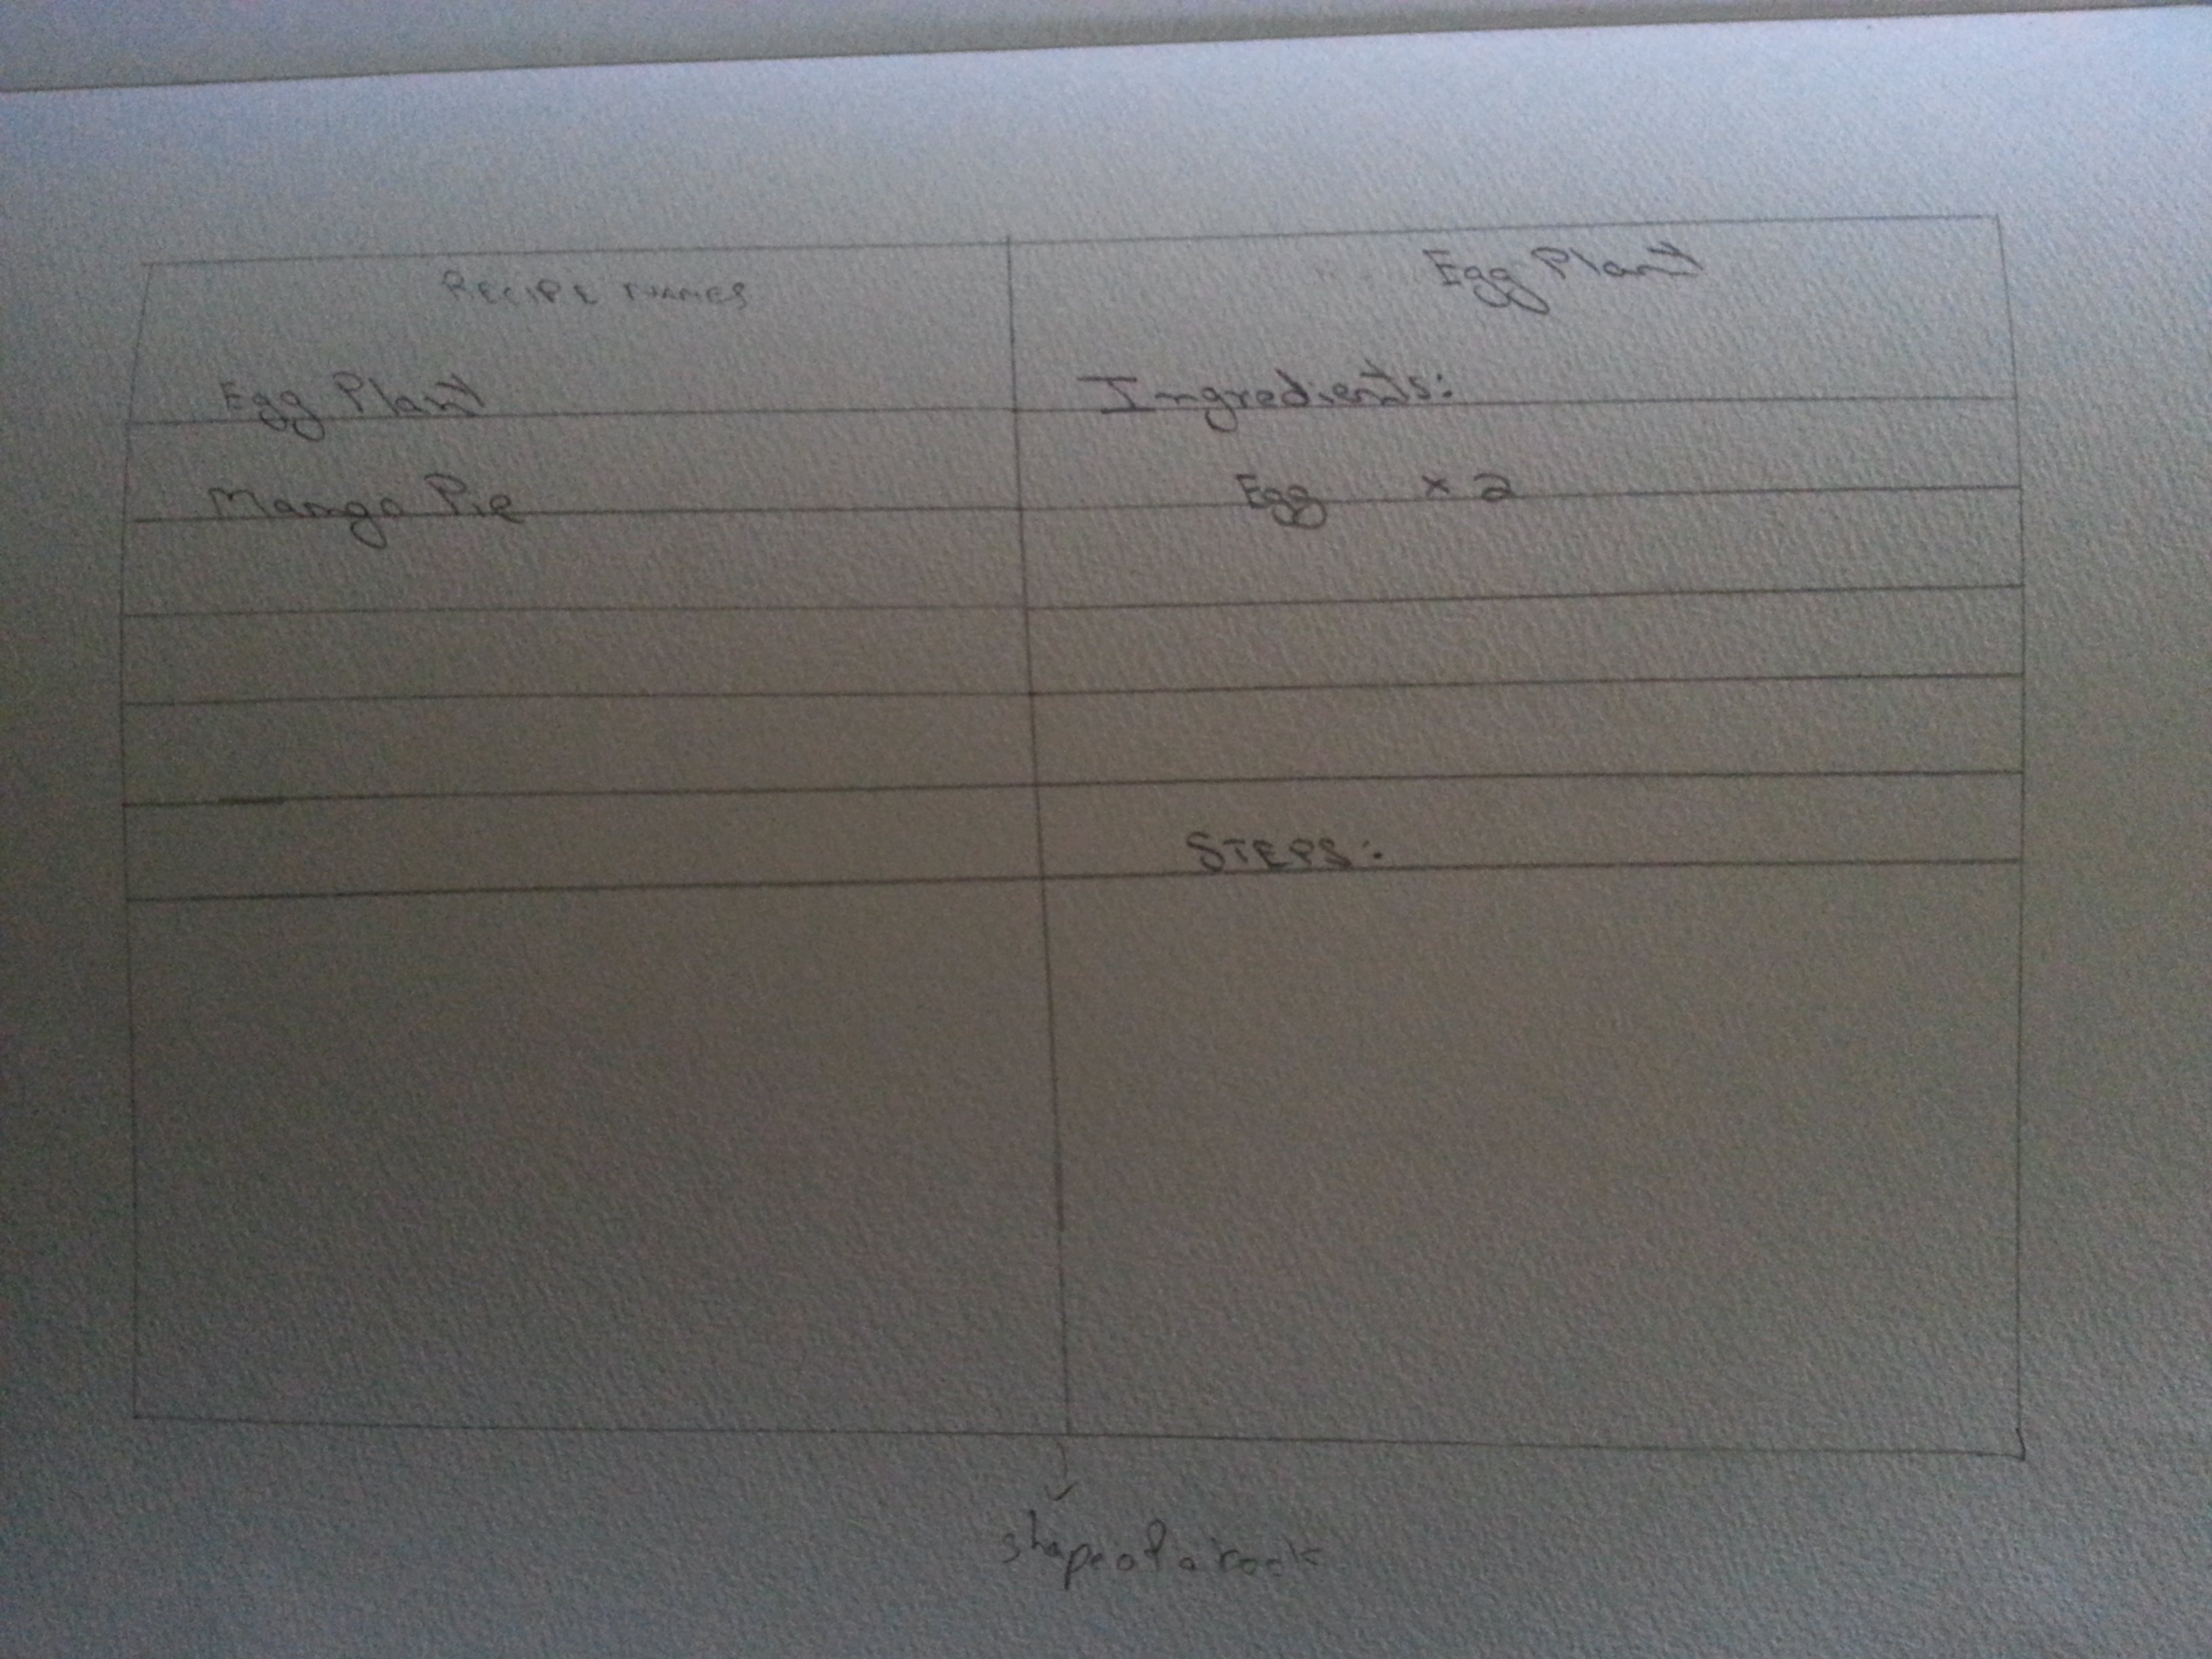 Recipe names
Egg Plant
Mango Pie
Egg Plant
Ingredients:
Egg x 2
STEPS:
shape of a book